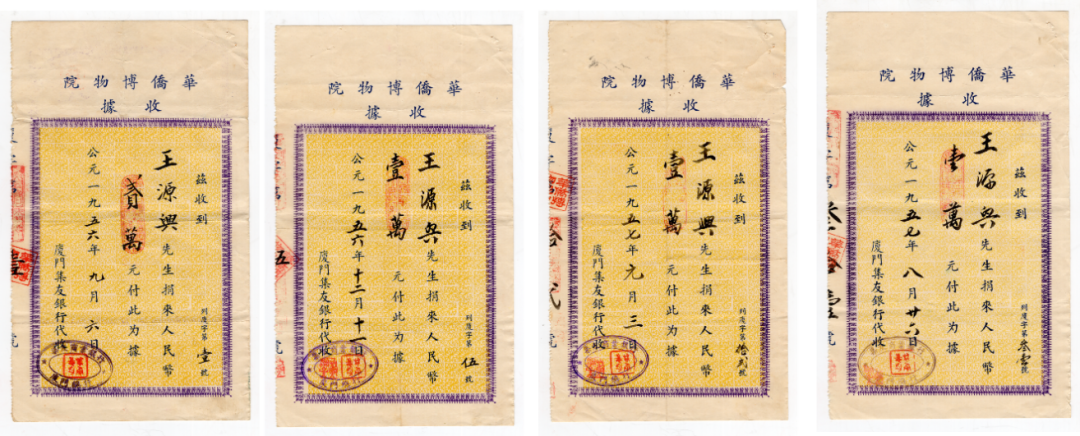 華僑博物院
收據
茲收到
列廈字第壹號
王源興先生捐來人民幣
貳萬元付此为據
公元一九五六年九月六日
廈門集友銀行代收
華僑博物院
收據
茲收到
列廈字第伍號
王源興先生捐來人民幣
壹萬元付此为據
公元一九五六年十二月十一日
廈門集友銀行代收
華僑博物院
收據
茲收到
列廈字第拾貳號
王源興先生捐來人民幣
壹萬元付此为據
公元一九五七年元月三日
廈門集友銀行代收
華僑博物院
收據
茲收到
列廈字第叁壹號
王源興先生捐來人民幣
壹萬元付此为據
公元一九五七年八月廿六日
廈門集友銀行代收